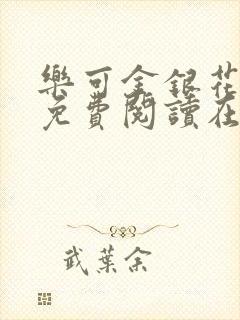 樂可金銀花
免費閱讀在
武葉余